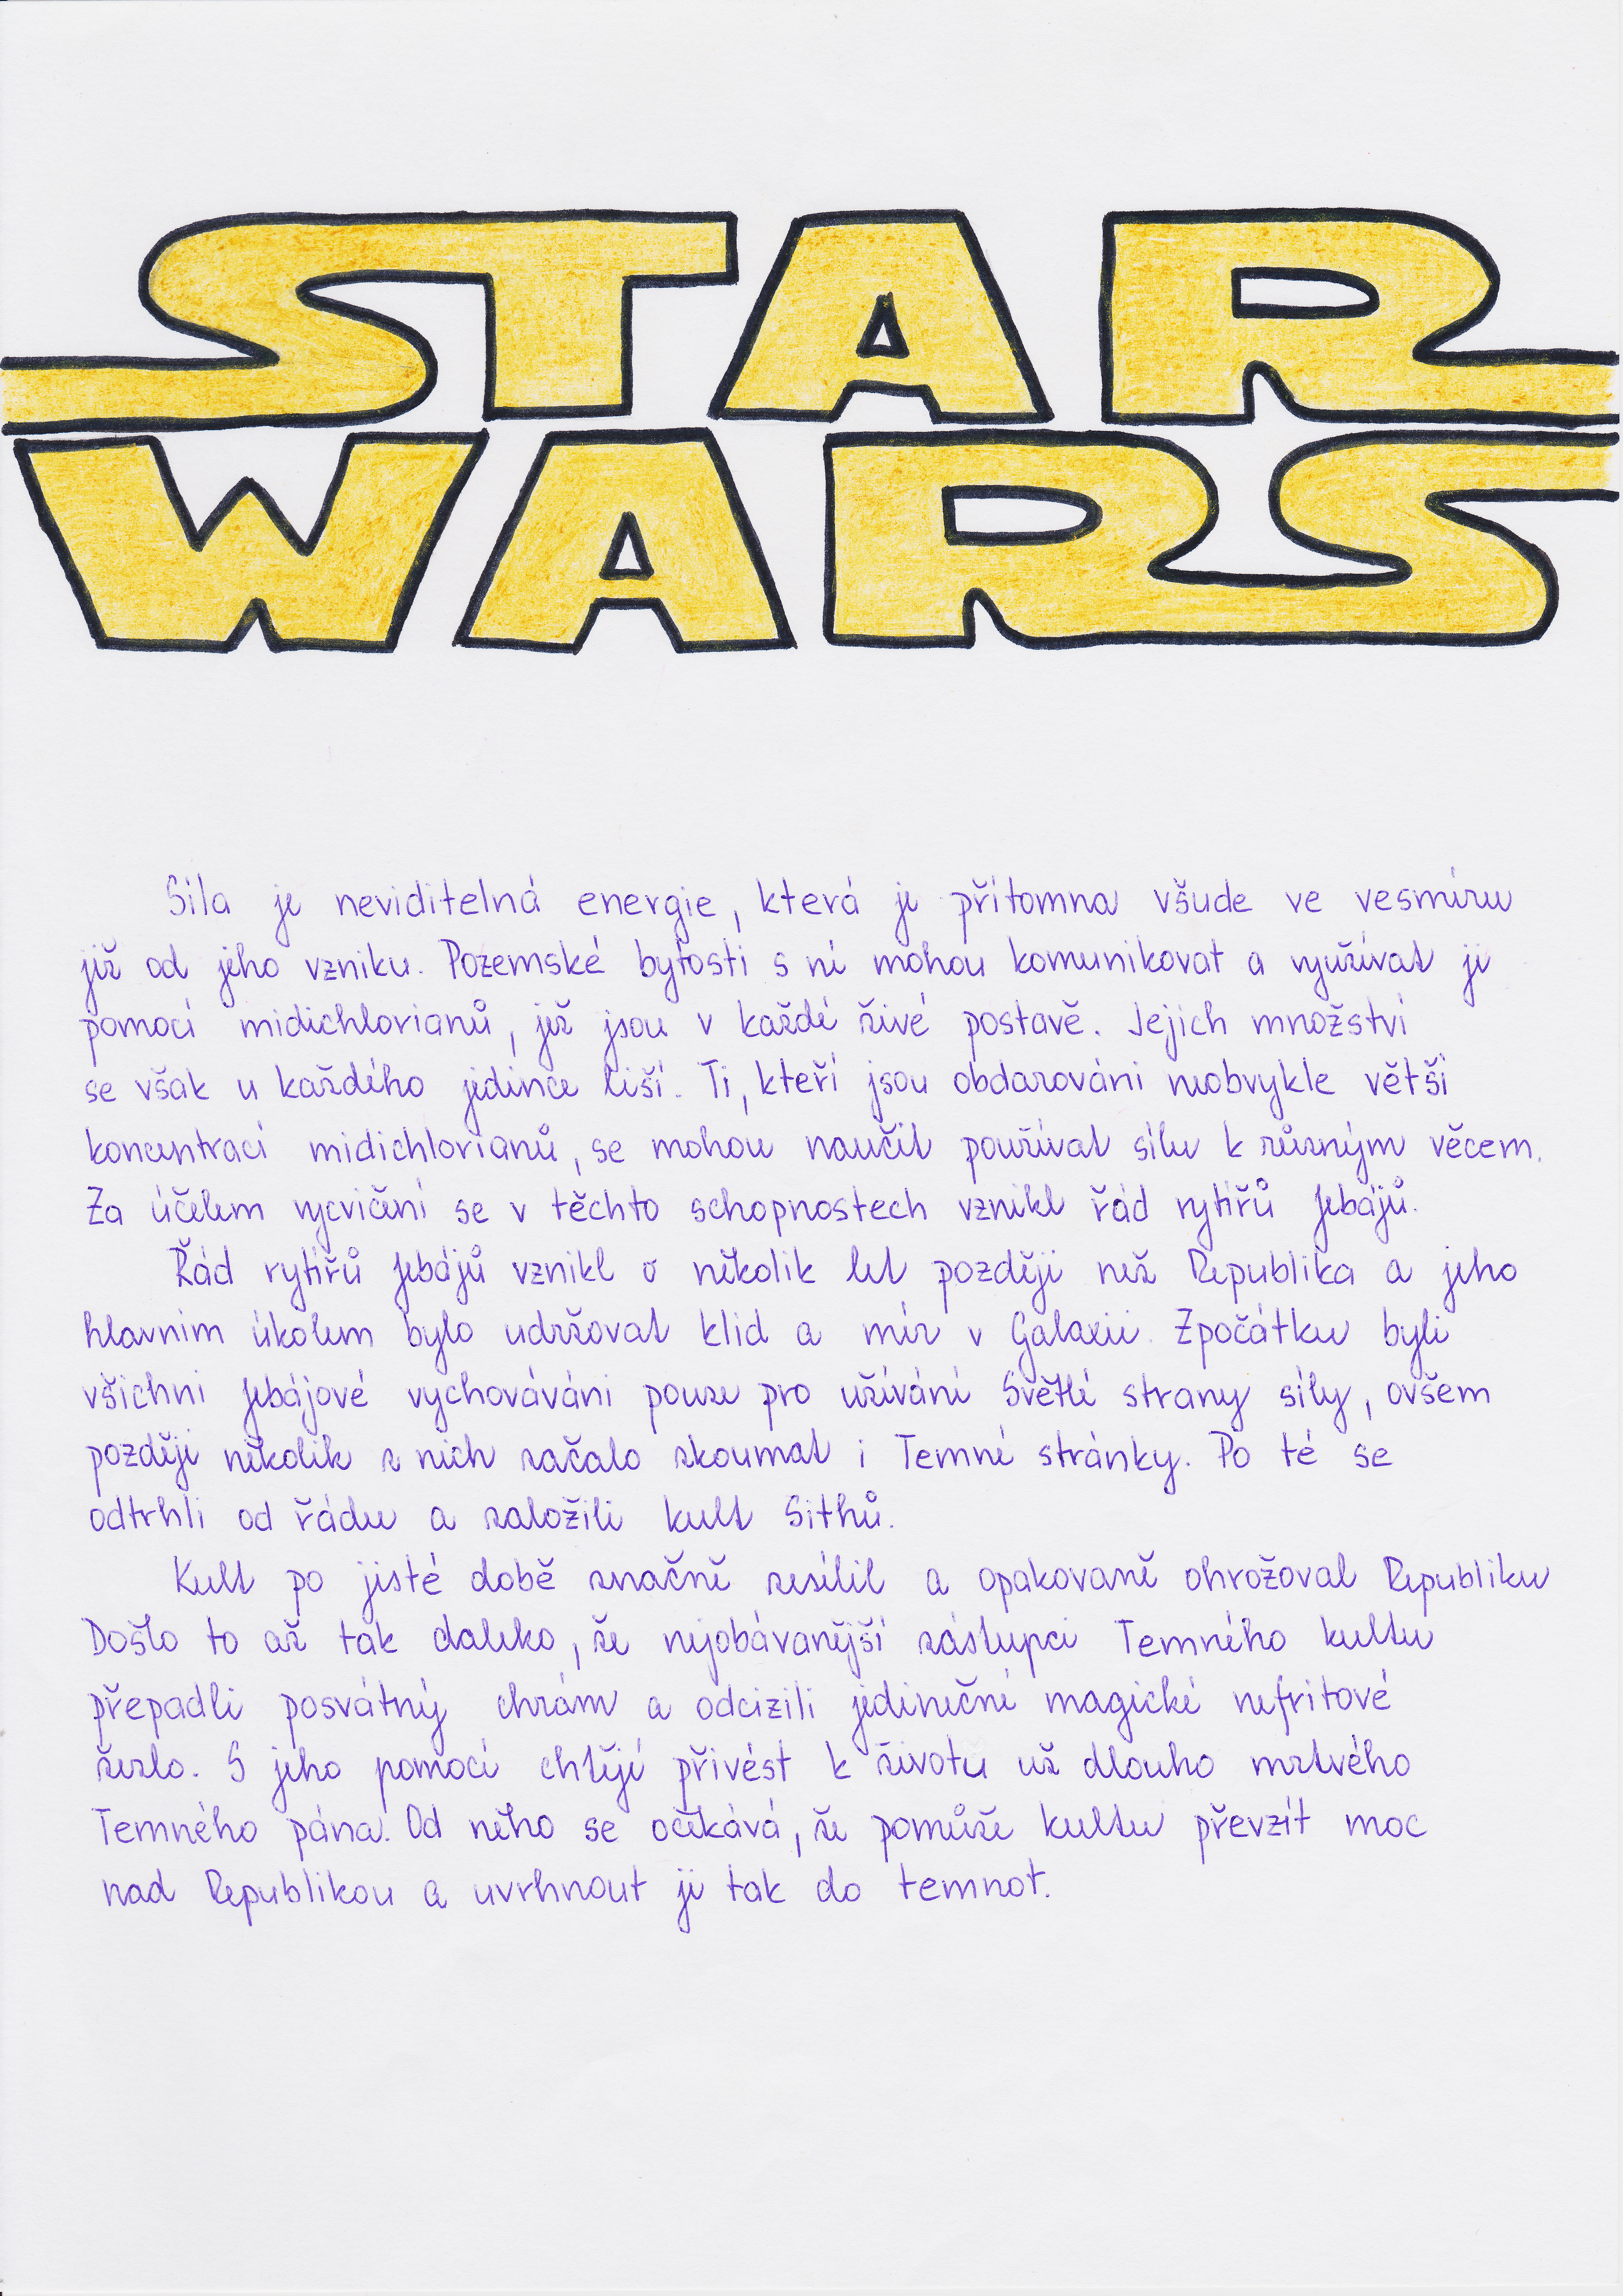 STAR
WARS
Síla je neviditelná energie, která je přítomna všude ve vesmíru
již od jeho vzniku. Pozemské bytosti s ní mohou komunikovat a využívat ji
pomocí midichlorianů, jež jsou v každé živé postavě. Jejich množství
se však u každého jedince liší. Ti, kteří jsou obdarováni neobvykle větší
koncentrací midichlorianů, se mohou naučit používat sílu k různým věcem.
Za účelem vycvičení se v těchto schopnostech vznikl řád rytířů Jebájů.
Řád rytířů Jebájů vznikl o několik let později než Republika a jeho
hlavním úkolem bylo udržovat klid a mír v Galaxii. Zpočátku byli
všichni Jebájové vychováváni pouze pro užívání Světlé strany síly, ovšem
později několik z nich začalo zkoumat i Temné stránky. Po té se
odtrhli od řádu a založili kult Sithů.
Kult po jisté době značně zesílil a opakovaně ohrožoval Republiku
Došlo to až tak daleko, že nejobávanější zástupci Temného kultu
přepadli posvátný chrám a odcizili jedinečné magické nefritové
žezlo. S jeho pomocí chtějí přivést k životu už dlouho mrtvého
Temného pána. Od něho se očekává, že pomůže kultu převzít moc
nad Republikou a uvrhnout ji tak do temnot.